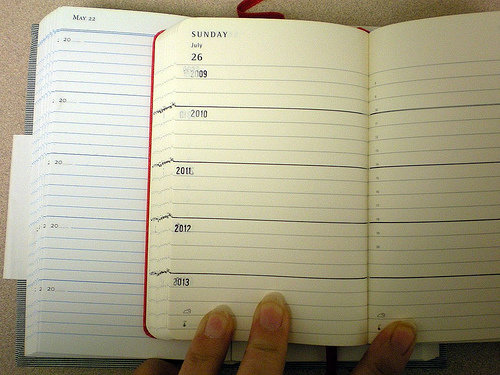 May 22
20
20
20
20
20
SUNDAY
July
26
2009
2010
2011
2012
2013